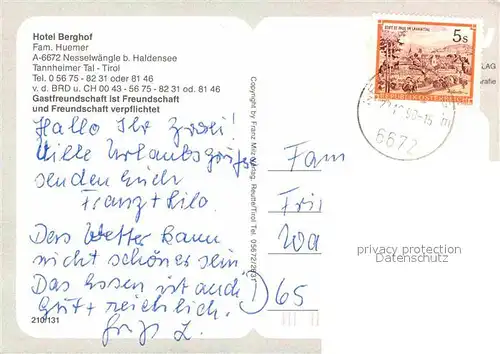 Hotel Berghof
Fam. Huemer
A-6672 Nesselwängle b. Haldensee
Tannheimer Tal - Tirol
Tel. 0 56 75 - 82 31 oder 81 46
v. d. BRD u. CH 00 43 - 56 75 - 82 31 od. 81 46
Gastfreundschaft ist Freundschaft
und Freundschaft verpflichtet
Hallo Ihr Zwei!
Viele Urlaubsgrüße
senden Euch
Franz + Lilo.
Das Wetter kann
nicht schöner sein.
Das Essen ist auch
gut + reichlich.
L.
210/131
Copyright by Franz Milz Verlag, Reutte/Tirol Tel. 05672/2831
5s
REPUBLIK ÖSTERREICH
6672
LAG
rafie
Fam
Wa
65
privacy protection
Datenschutz